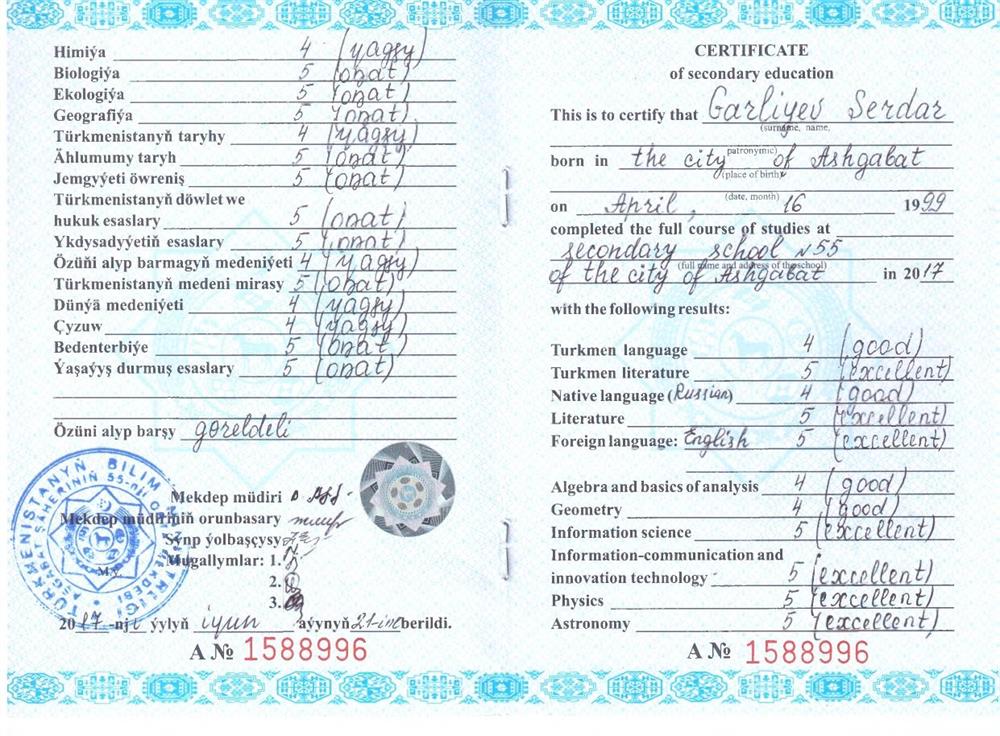 Himiýa 4 (ýagşy)
Biologiýa 5 (oňat)
Ekologiýa 5 (oňat)
Geografiýa 5 (oňat)
Türkmenistanyň taryhy 4 (ýagşy)
Ählumumy taryh 5 (oňat)
Jemgyýeti öwreniş 5 (oňat)
Türkmenistanyň döwlet we
hukuk esaslary 5 (oňat)
Ykdysadyýetiň esaslary 5 (oňat)
Özüňi alyp barmagyň medeniýeti 4 (ýagşy)
Türkmenistanyň medeni mirasy 5 (oňat)
Dünýä medeniýeti 4 (ýagşy)
Çyzuw 4 (ýagşy)
Bedenterbiýe 5 (oňat)
Ýaşaýyş durmuş esaslary 5 (oňat)
Özüni alyp barşy göreldeli
TÜRKMENISTANYŇ BILIM
AŞGABAT ŞÄHERINIŇ 55-nji
Mekdep müdiri
Mekdep müdiriniň orunbasary
Synp ýolbaşçysy
Mugallymlar: 1.
M.Ý.
2.
3.
2017-nji ýylyň iýun aýynyň 21-inde berildi.
A № 1588996
CERTIFICATE
of secondary education
This is to certify that Garliyev Serdar
(surname, name,
patronymic)
born in the city of Ashgabat
(place of birth)
on April, 16 1999
(date, month)
completed the full course of studies at
secondary school №55
(full name and address of the school)
of the city of Ashgabat in 2017
with the following results:
Turkmen language 4 (good)
Turkmen literature 5 (excellent)
Native language (Russian) 4 (good)
Literature 5 (excellent)
Foreign language: English 5 (excellent)
Algebra and basics of analysis 4 (good)
Geometry 4 (good)
Information science 5 (excellent)
Information-communication and
innovation technology 5 (excellent)
Physics 5 (excellent)
Astronomy 5 (excellent)
A № 1588996